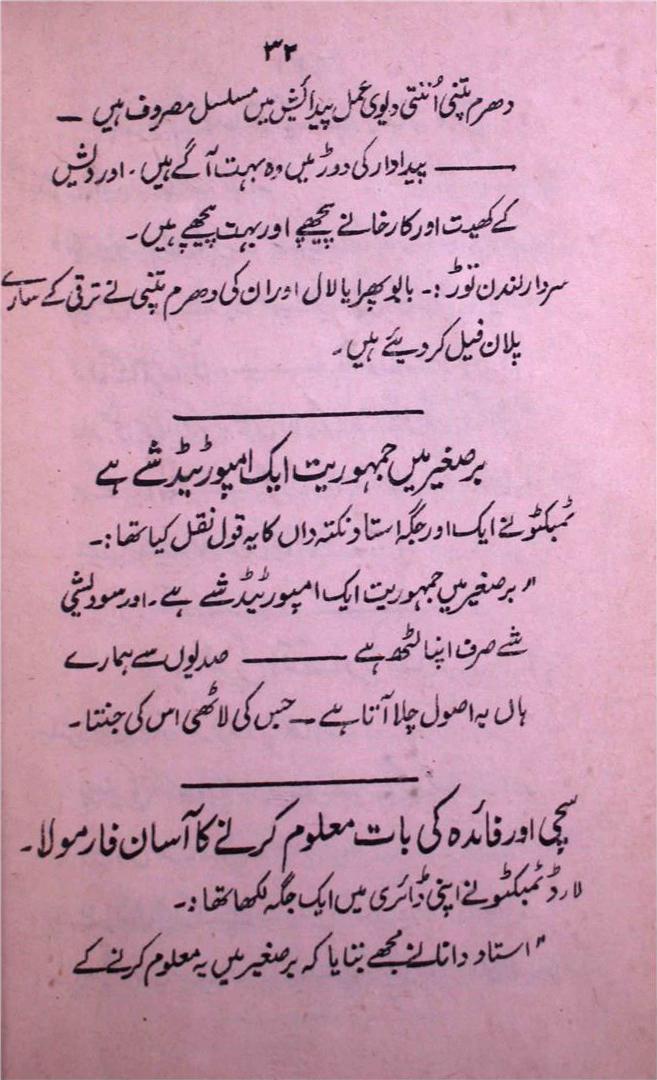 ۳۲
دھرم پتنی اُنتی دیوی عمل پیدائش میں مسلسل مصروف ہیں ــ
ــــــــ پیداوار کی دوڑ میں وہ بہت آگے ہیں ۔ اور دیش
کے کھیت اور کارخانے پیچھے اور بہت پیچھے ہیں ۔
سردار لندن توڑ :۔ بابو بھرایا لال اور ان کی دھرم پتنی نے ترقی کے سارے
پلان فیل کر دیئے ہیں ۔
برصغیر میں جمہوریت ایک امپورٹیڈ شے ہے
ٹمبکٹو نے ایک اور جگہ استاد نکتہ داں کا یہ قول نقل کیا تھا :۔
" برصغیر میں جمہوریت ایک امپورٹیڈ شے ہے ۔ اور سودیشی
شے صرف اپنا لٹھ ہے ــــــــ صدیوں سے ہمارے
ہاں یہ اصول چلا آتا ہے ــ جس کی لاٹھی اس کی جنتا ۔
سچی اور فائدہ کی بات معلوم کرنے کا آسان فارمولا ۔
لارڈ ٹمبکٹو نے اپنی ڈائری میں ایک جگہ لکھا تھا :۔
" استاد دانا نے مجھے بتایا کہ برصغیر میں یہ معلوم کرنے کے